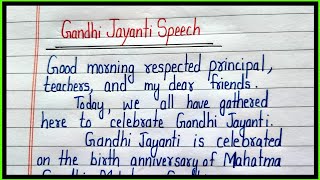 Gandhi Jayanti Speech
Good morning respected principal,
teachers, and my dear friends.
Today, we all have gathered
here to celebrate Gandhi Jayanti.
Gandhi Jayanti is celebrated
on the birth anniversary of Mahatma